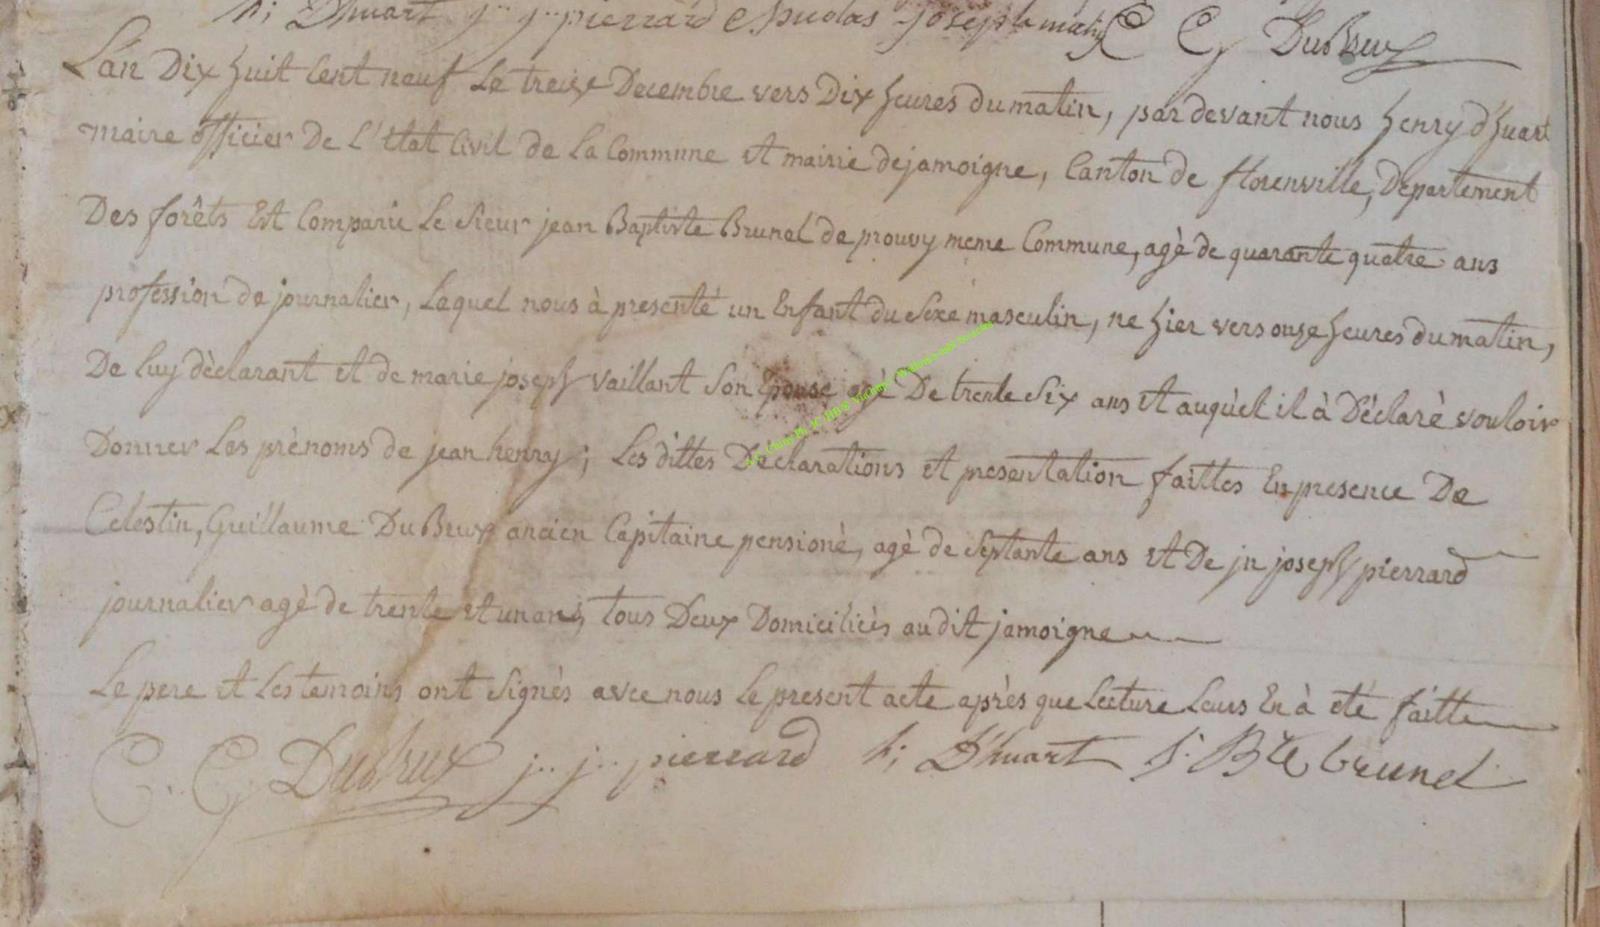 h; Dhuart j.. j.. pierrard Nicolas joseph C G Dubrux
L'an Dix huit Cent neuf Le treize Decembre vers Dix heures du matin, par devant nous henry d'huart
maire officier De L'êtat Civil de La Commune et mairie de jamoigne, Canton de florenville, Departement
Des forêts Est Comparie Le Sieur jean Baptiste Brunel de prouvy meme Commune, agè de quarante quatre ans
profession de journalier, Lequel nous à presenté un Enfant du Sexe masculin, ne hier vers onze heures du matin,
De luy dèclarant et de marie joseph vaillant Son Epouse agè De trente Six ans et auquèl il à Dèclarè vouloir
Donner Les prènoms de jean henry; Les dittes Dèclarations et presentation faittes En presence De
Celestin, Guillaume Dubrux ancien Capitaine pensionè, agè de Septante ans et De jn joseph pierrard
journalier agè de trente et un ans, tous Deux Domiciliès au dit jamoigne
Le pere et Les temoins ont Signès avec nous Le present acte après que Lecture Leurs En à eté faitte
C.. G Dubrux j.. j.. pierrard h; Dhuart j. Bte brunel